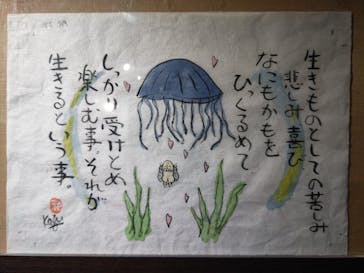 生きものとしての苦しみ
悲しみ喜び
なにもかもを
ひっくるめて
しっかり受けとめ
楽しむ事。それが
生きるという事。